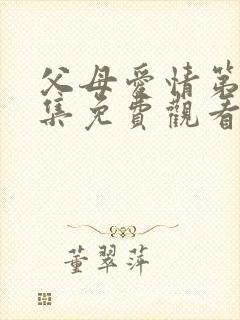 父母愛情第
集免費觀看
董翠萍